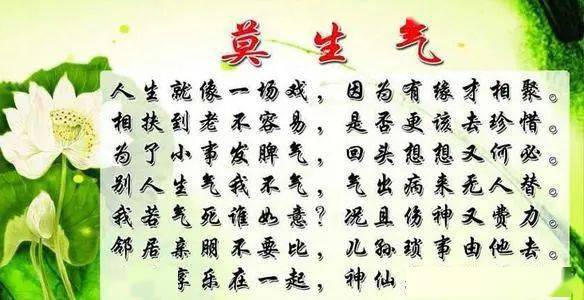 莫生气
人生就像一场戏，因为有缘才相聚。
相扶到老不容易，是否更该去珍惜。
为了小事发脾气，回头想想又何必。
别人生气我不气，气出病来无人替。
我若气死谁如意？况且伤神又费力。
邻居亲朋不要比，儿孙琐事由他去。
享乐在一起，神仙